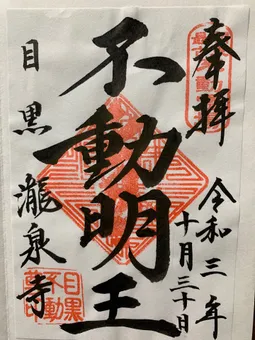 奉拝
令和三年
十月三十日
不動明王
目黒
瀧泉寺
目黒
不動